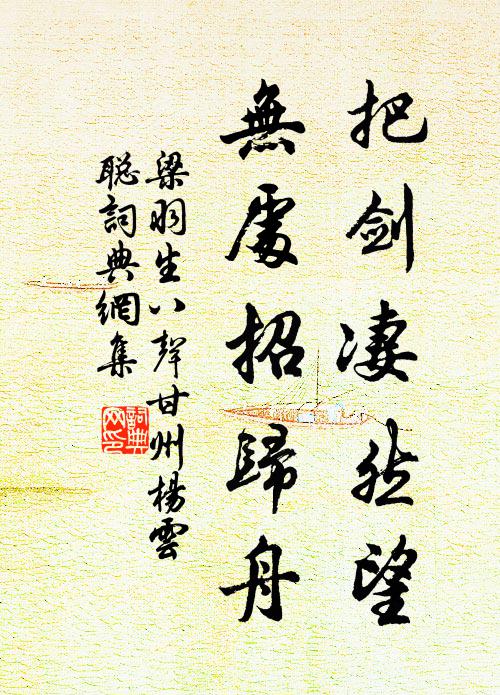 把劍淒然望
無處招歸舟
梁羽生八聲甘州楊雲
聡詞典網集
詞典
网印